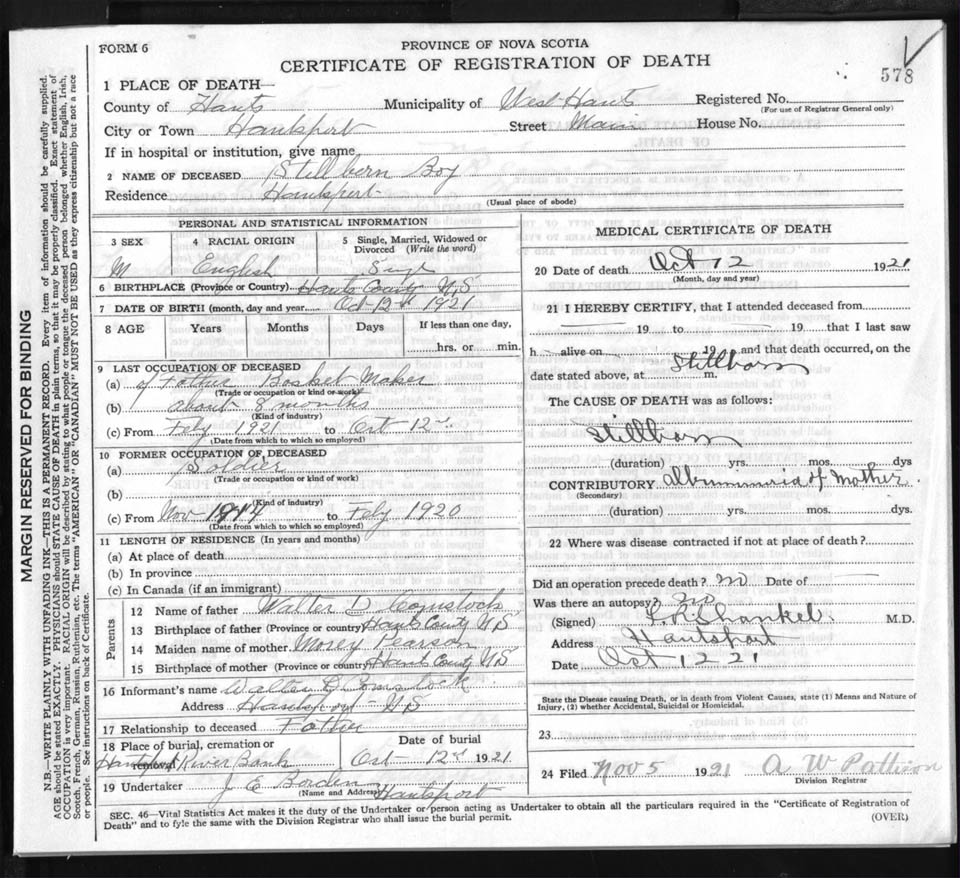 FORM 6
PROVINCE OF NOVA SCOTIA
CERTIFICATE OF REGISTRATION OF DEATH
578
1 PLACE OF DEATH—
County of Hants Municipality of West Hants Registered No.
(For use of Registrar General only)
City or Town Hantsport Street Main House No.
If in hospital or institution, give name
2 NAME OF DECEASED Stillborn Boy
Residence Hantsport
(Usual place of abode)
PERSONAL AND STATISTICAL INFORMATION
3 SEX 4 RACIAL ORIGIN 5 Single, Married, Widowed or Divorced (Write the word)
M English Singl
6 BIRTHPLACE (Province or Country) Hants County N.S
7 DATE OF BIRTH (month, day and year) Oct 12 1921
8 AGE Years Months Days If less than one day,
hrs. or min.
9 LAST OCCUPATION OF DECEASED
(a) of Father Basket Maker
(Trade or occupation or kind of work)
(b) about 8 months
(Kind of industry)
(c) From Feby 1921 to Oct 12
(Date from which to which so employed)
10 FORMER OCCUPATION OF DECEASED
(a) Soldier
(Trade or occupation or kind of work)
(b)
(Kind of industry)
(c) From Nov to Feby 1920
(Date from which to which so employed)
11 LENGTH OF RESIDENCE (In years and months)
(a) At place of death
(b) In province
(c) In Canada (if an immigrant)
Parents
12 Name of father Walter D Comstock
13 Birthplace of father (Province or country) Hants County N S
14 Maiden name of mother Pearson
15 Birthplace of mother (Province or country) Hants County N S
16 Informant's name Walter D Comstock
Address Hantsport N S
17 Relationship to deceased Father
18 Place of burial, cremation or removal Date of burial
River Bank Oct 12 1921
19 Undertaker J E Borden Hantsport
(Name and Address)
MEDICAL CERTIFICATE OF DEATH
20 Date of death Oct 12 1921
(Month, day and year)
21 I HEREBY CERTIFY, that I attended deceased from
19 to 19 that I last saw
h alive on 19 and that death occurred, on the
date stated above, at Stillborn m.
The CAUSE OF DEATH was as follows:
Stillborn
(duration) yrs. mos. dys
CONTRIBUTORY Albuminuria of Mother
(Secondary)
(duration) yrs. mos. dys.
22 Where was disease contracted if not at place of death?
Did an operation precede death? no Date of
Was there an autopsy? no
(Signed) Shankel M.D.
Address Hantsport
Date Oct 12 21
State the Disease causing Death, or in death from Violent Causes, state (1) Means and Nature of
Injury, (2) whether Accidental, Suicidal or Homicidal.
23
24 Filed Nov 5 1921 A W Pattison
Division Registrar
SEC. 46—Vital Statistics Act makes it the duty of the Undertaker or person acting as Undertaker to obtain all the particulars required in the "Certificate of Registration of
Death" and to fyle the same with the Division Registrar who shall issue the burial permit.
(OVER)
MARGIN RESERVED FOR BINDING
N.B.—WRITE PLAINLY WITH UNFADING INK—THIS IS A PERMANENT RECORD. Every item of information should be carefully supplied.
AGE should be stated EXACTLY. PHYSICIANS should STATE CAUSE OF DEATH in plain terms, so that it may be properly classified. Exact statement of
OCCUPATION is very important. RACIAL ORIGIN will be described by stating to what people or tongue the deceased person belonged whether English, Irish,
Scotch, French, German, Russian, Ruthenian, etc. The terms "AMERICAN" or "CANADIAN" MUST NOT BE USED as they express citizenship but not a race
or people. See instructions on back of Certificate.